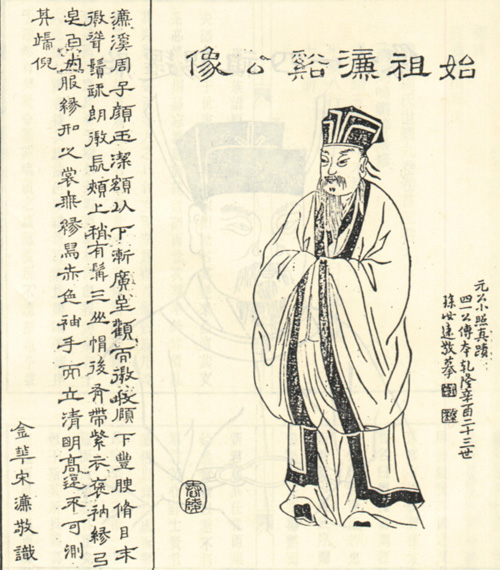 始祖濂谿公像
元公小照真蹟
四一公傳本乾隆辛酉二十三世
孫世逵敬摹
濂溪周子顏玉潔額以下漸廣至顴而微收頤下豐腴脩目末
微聳鬚疎朗微長頰上稍有髯三山帽後有帶紫衣褒袖緣以
皂白內服緣如之裳無緣舄赤色袖手而立清明高遠不可測
其端倪
金華宋濂敬識